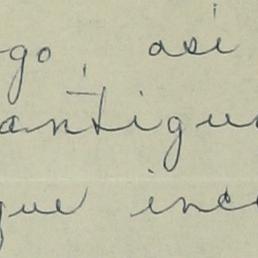 go, así
antigu
que inc